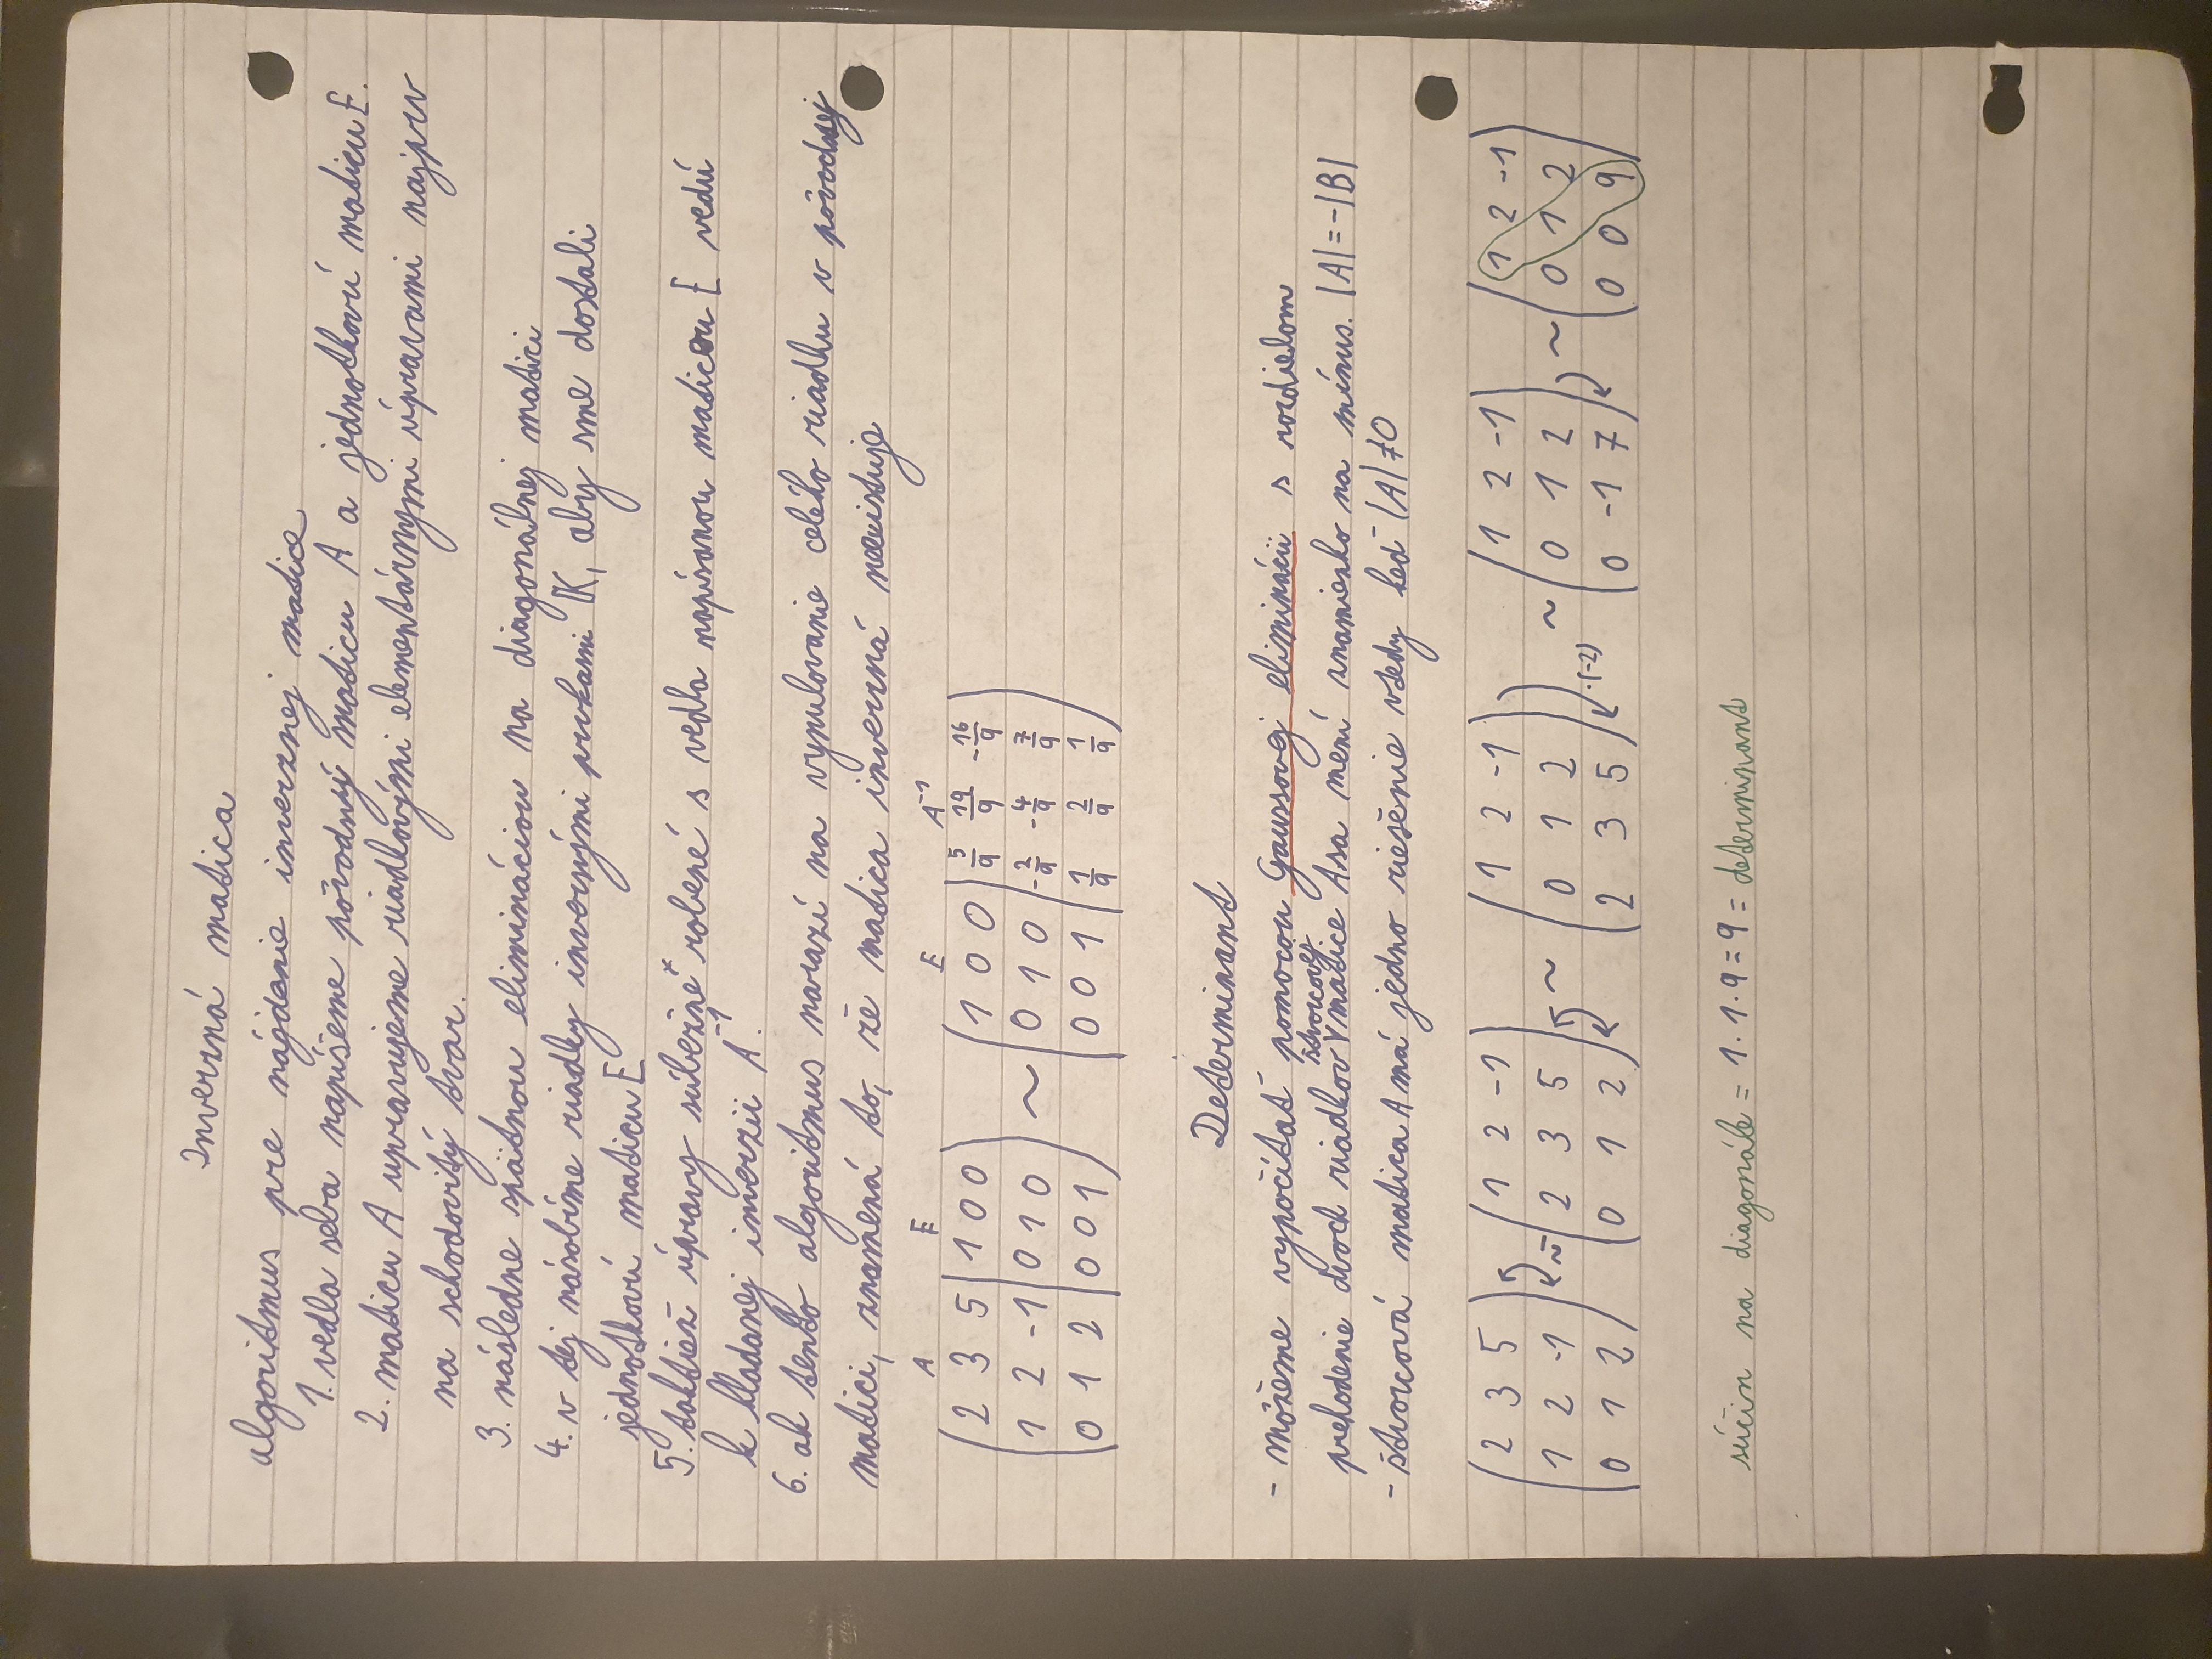 Inverzná matica
algoritmus pre nájdenie inverznej matice
1. vedla seba napíšeme pôvodný maticu A a jednotkovú maticu E.
2. maticu A upravujeme riadkovými elementárnymi úpravami najprv
na schodovitý tvar.
3. následne spätnou elimináciou na diagonálnej matici
4. v tej násobíme riadky inverými prvkami K, aby sme dostali
jednotkovú maticu E
5. taktiež úpravy súbežné robené s vedla napísanou maticou E vedú
k hladanej inverzii A⁻¹.
6. ak tento algoritmus narazí na vynulovanie celého riadku v pôvodnej
matici, znamená to, že matica inverzná neexistuje
A E E A⁻¹
( 2 3 5 | 1 0 0 ) ( 1 0 0 | 5/9 19/9 -16/9 )
( 1 2 -1 | 0 1 0 ) ~ ( 0 1 0 | -2/9 -4/9 7/9 )
( 0 1 2 | 0 0 1 ) ( 0 0 1 | 1/9 2/9 1/9 )
Determinant
- môžeme vypočítať pomocou Gaussovej eliminácii s rozdielom
prehodenie dvoch riadkov štvorcovej matice A sa mení znamienko na mínus. |A| = -|B|
- štvorcová matica A má jedno riešenie vtedy keď |A| ≠ 0
( 2 3 5 ) ( 1 2 -1 ) ( 1 2 -1 ) ( 1 2 -1 ) ( 1 2 -1 )
( 1 2 -1 ) ~ ( 2 3 5 ) ~ ( 0 1 2 ) ·(-2) ~ ( 0 1 2 ) ~ ( 0 1 2 )
( 0 1 2 ) ( 0 1 2 ) ( 2 3 5 ) ( 0 -1 7 ) ( 0 0 9 )
súčin na diagonále = 1.1.9 = 9 = determinant